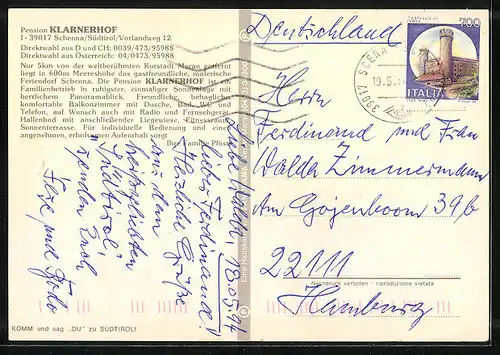 Pension KLARNERHOF
I - 39017 Schenna/Südtirol/Vorlandweg 12
Direktwahl aus D und CH: 0039/473/95988
Direktwahl aus Österreich: 04/0473/95988
Nur 5km von der weltberühmten Kurstadt Meran entfernt
liegt in 600m Meereshöhe das gastfreundliche, malerische
Feriendorf Schenna. Die Pension KLARNERHOF ist ein
Familienbetrieb in ruhigster, einmaliger Sonnenlage mit
herrlichem Panoramablick. Freundliche, behagliche
komfortable Balkonzimmer mit Dusche, Bad, WC und
Telefon, auf Wunsch auch mit Radio und Fernsehgerät.
Hallenbad mit anschließender Liegewiese, Fitnessraum,
Sonnenterrasse. Für individuelle Bedienung und einen
angenehmen, erholsamen Aufenthalt sorgt
Ihre Familie Pföstl
18.05.94
Liebe Walda,
lieber Ferdinand!
Herzliche Grüße
aus dem
herbstgeliebten
"Südtirol"
senden Euch
Feze und Godo
KOMM und sag „DU" zu SÜDTIROL!
Deutschland
700
ITALIA
39017 SCENA
19.5.
Herrn
Ferdinand und Frau
Walda Zimmermann
Am Gojenboom 39b
22111
Hamburg
Nachdruck verboten - riproduzione vietata